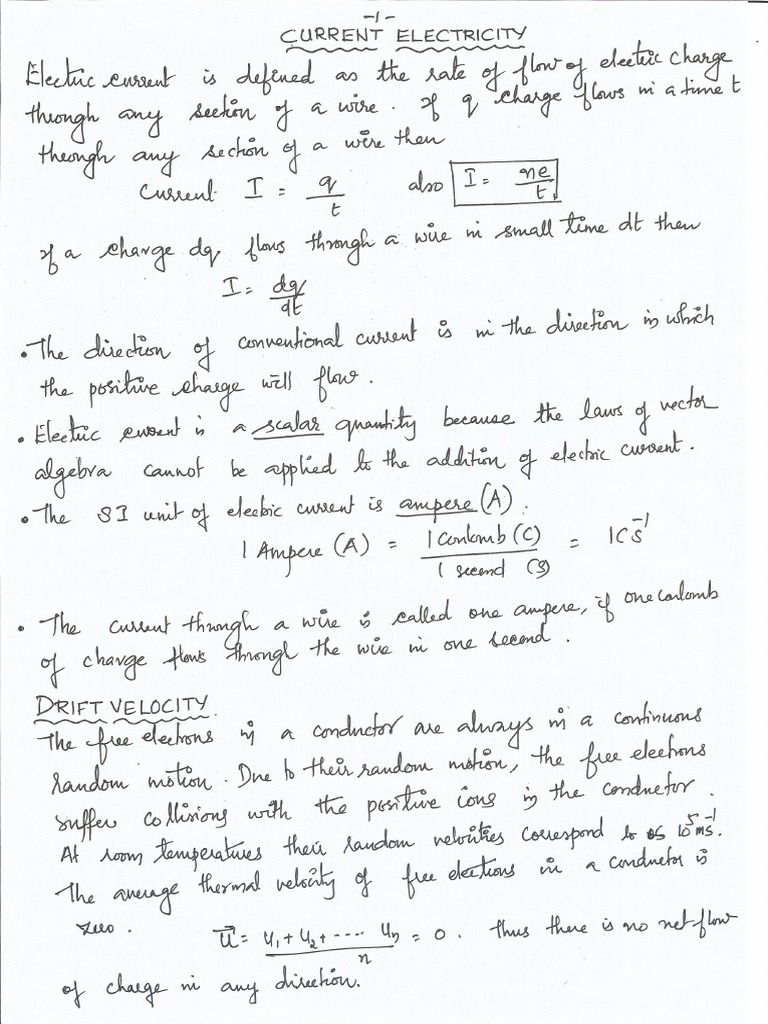 -1-
CURRENT ELECTRICITY
Electric current is defined as the rate of flow of electric charge
through any section of a wire. If q charge flows in a time t
through any section of a wire then
Current I = q/t also I = ne/t
If a charge dq flows through a wire in small time dt then
I = dq/dt
• The direction of conventional current is in the direction in which
the positive charge will flow.
• Electric current is a scalar quantity because the laws of vector
algebra cannot be applied to the addition of electric current.
• The SI unit of electric current is ampere (A).
1 Ampere (A) = 1 Coulomb (C) / 1 second (s) = 1 C s⁻¹
• The current through a wire is called one ampere, if one coulomb
of charge flows through the wire in one second.
DRIFT VELOCITY
The free electrons in a conductor are always in a continuous
random motion. Due to their random motion, the free electrons
suffer collisions with the positive ions in the conductor.
At room temperatures their random velocities correspond to 10⁵ ms⁻¹.
The average thermal velocity of free electrons in a conductor is
zero. u⃗ = u₁ + u₂ + ---- uₙ / n = 0. Thus there is no net flow
of charge in any direction.